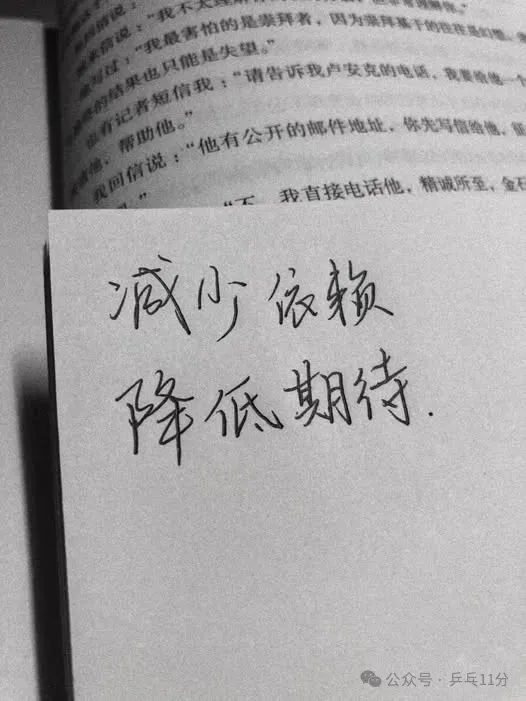 来信说："我不太
写过："我最害怕的是崇拜者，因为崇拜基于的往往是幻想，
的结果也只能是失望。"
也有记者短信我："请告诉我卢安克的电话，我要给他一个
他，帮助他。"
我回信说："他有公开的邮件地址，你先写信给他，
"不，我直接电话他，精诚所至，金石
减少依赖
降低期待.
公众号·乒乓11分